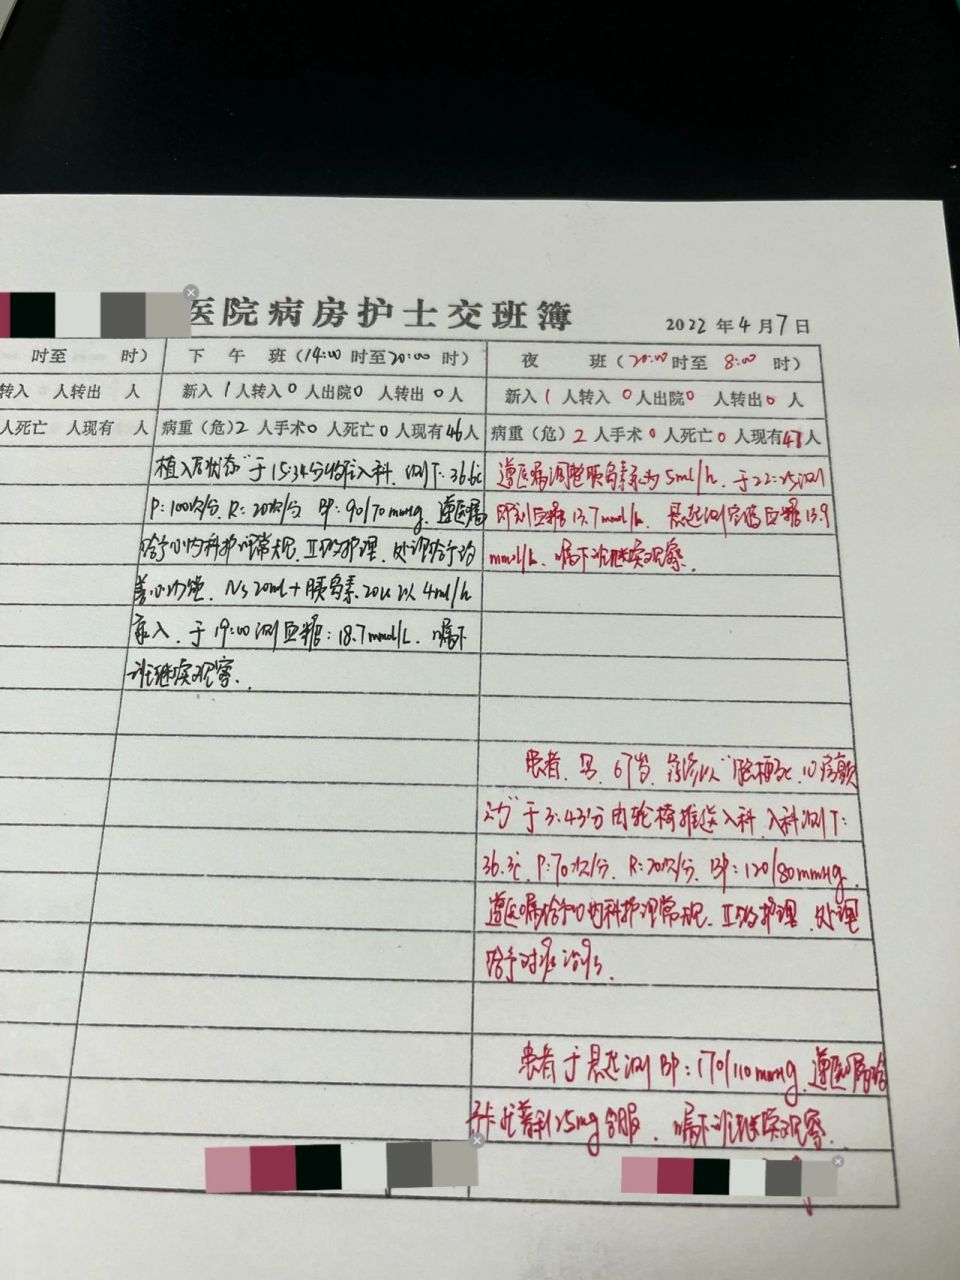 医院病房护士交班簿
2022年4月7日
时至 时)
下午班(14:00时至20:00时)
夜班(20:00时至8:00时)
转入 人转出 人
新入1人转入0人出院0人转出0人
新入1人转入0人出院0人转出0人
人死亡 人现有 人
病重(危)2人手术0人死亡0人现有46人
病重(危)2人手术0人死亡0人现有47人
植入后状态"于15:34分 入科.测T:36.6℃
P:100次/分.R:20次/分 BP:90/70mmHg.遵医嘱
给予心内科护理常规.Ⅱ级护理.处理给予改
善心功能.NS 20ml+胰岛素20u以4ml/h
泵入.于19:00测血糖:18.7mmol/L.嘱下
班继续观察.
遵医嘱调整胰岛素为5ml/h.于22:25测
即刻血糖13.7mmol/L.晨起测空腹血糖13.9
mmol/L.嘱下班继续观察.
患者.男.67岁.急诊以"脑梗死.心房颤
动"于3:43分由轮椅推送入科.入科测T:
36.3℃.P:70次/分.R:20次/分.BP:120/80mmHg.
遵医嘱给予心内科护理常规.Ⅱ级护理.处理
给予对症治疗.
患者于晨起测BP:170/110mmHg.遵医嘱给
予卡托普利25mg含服.嘱下班继续观察.